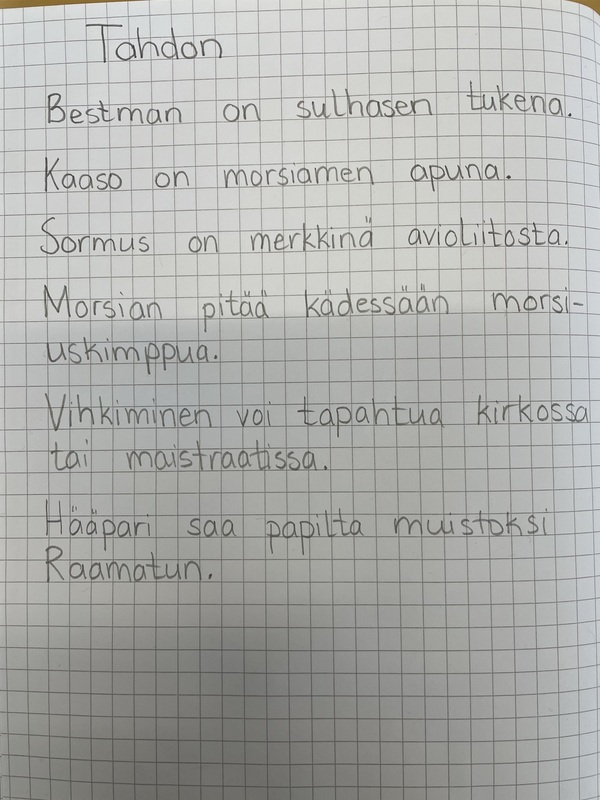 Tahdon
Bestman on sulhasen tukena.
Kaaso on morsiamen apuna.
Sormus on merkkinä avioliitosta.
Morsian pitää kädessään morsi-
uskimppua.
Vihkiminen voi tapahtua kirkossa
tai maistraatissa.
Hääpari saa papilta muistoksi
Raamatun.